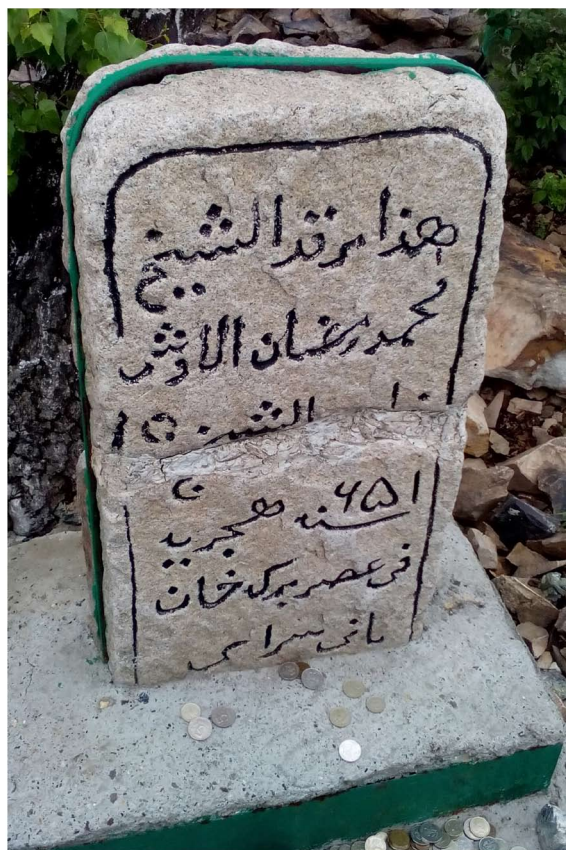 هذا مرقد الشيخ
محمد رمضان الاوش
۶۵۱
سنه هجريه
فى عصر برکه خان
بانى سراى